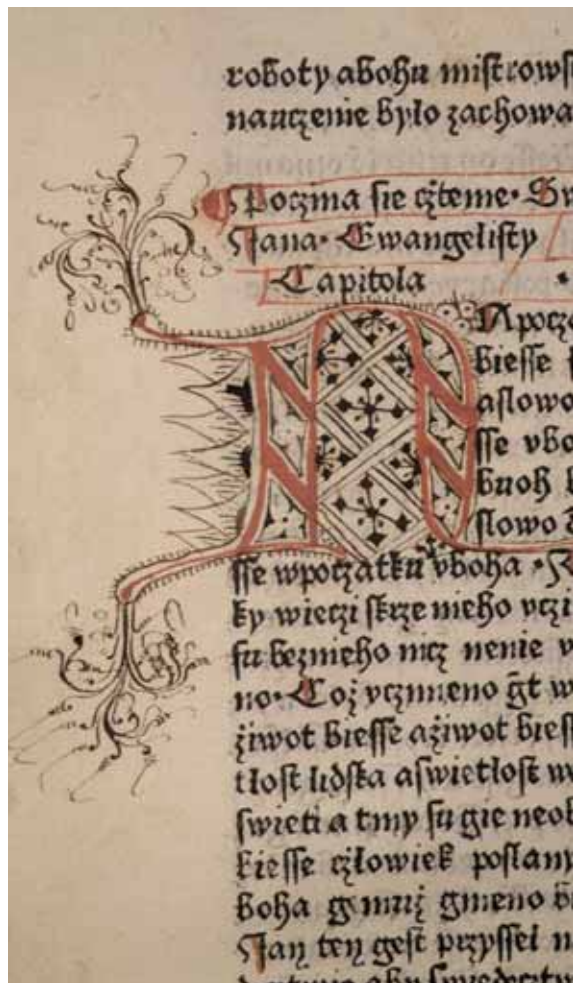 roboty abohu miſtrowſ
nauczenie bylo zachowa
Poczina ſie cżtenie· Sw
Jana· Ewangeliſty
Capitola ·
N Apocza
bieſſe
aſlowo
ſſe vbo
buoh
ſlowo
ſſe wpoczatku vboha ·
ky wieczi ſkrze nieho vczi
ſu beznieho nicz nenie v
no· Coż vczineno g̃t w
żiwot bieſſe ażiwot bieſſ
tloſt lidſka aſwietloſt
ſwieti a tmy ſu gie neob
bieſſe człowiek poſlany
boha gemuż gmeno b
Jan ten geſt przyſſel n